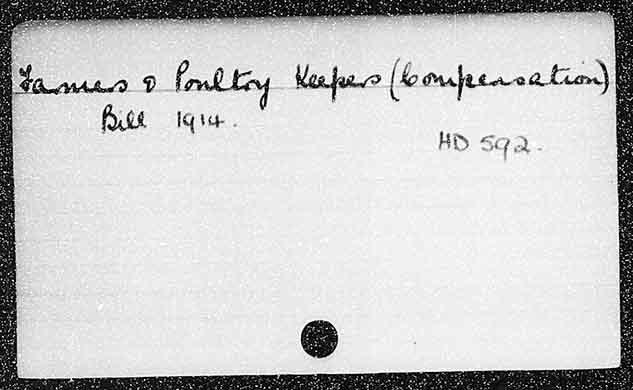 Farmers & Poultry Keepers (Compensation)
Bill 1914.
HD 592.